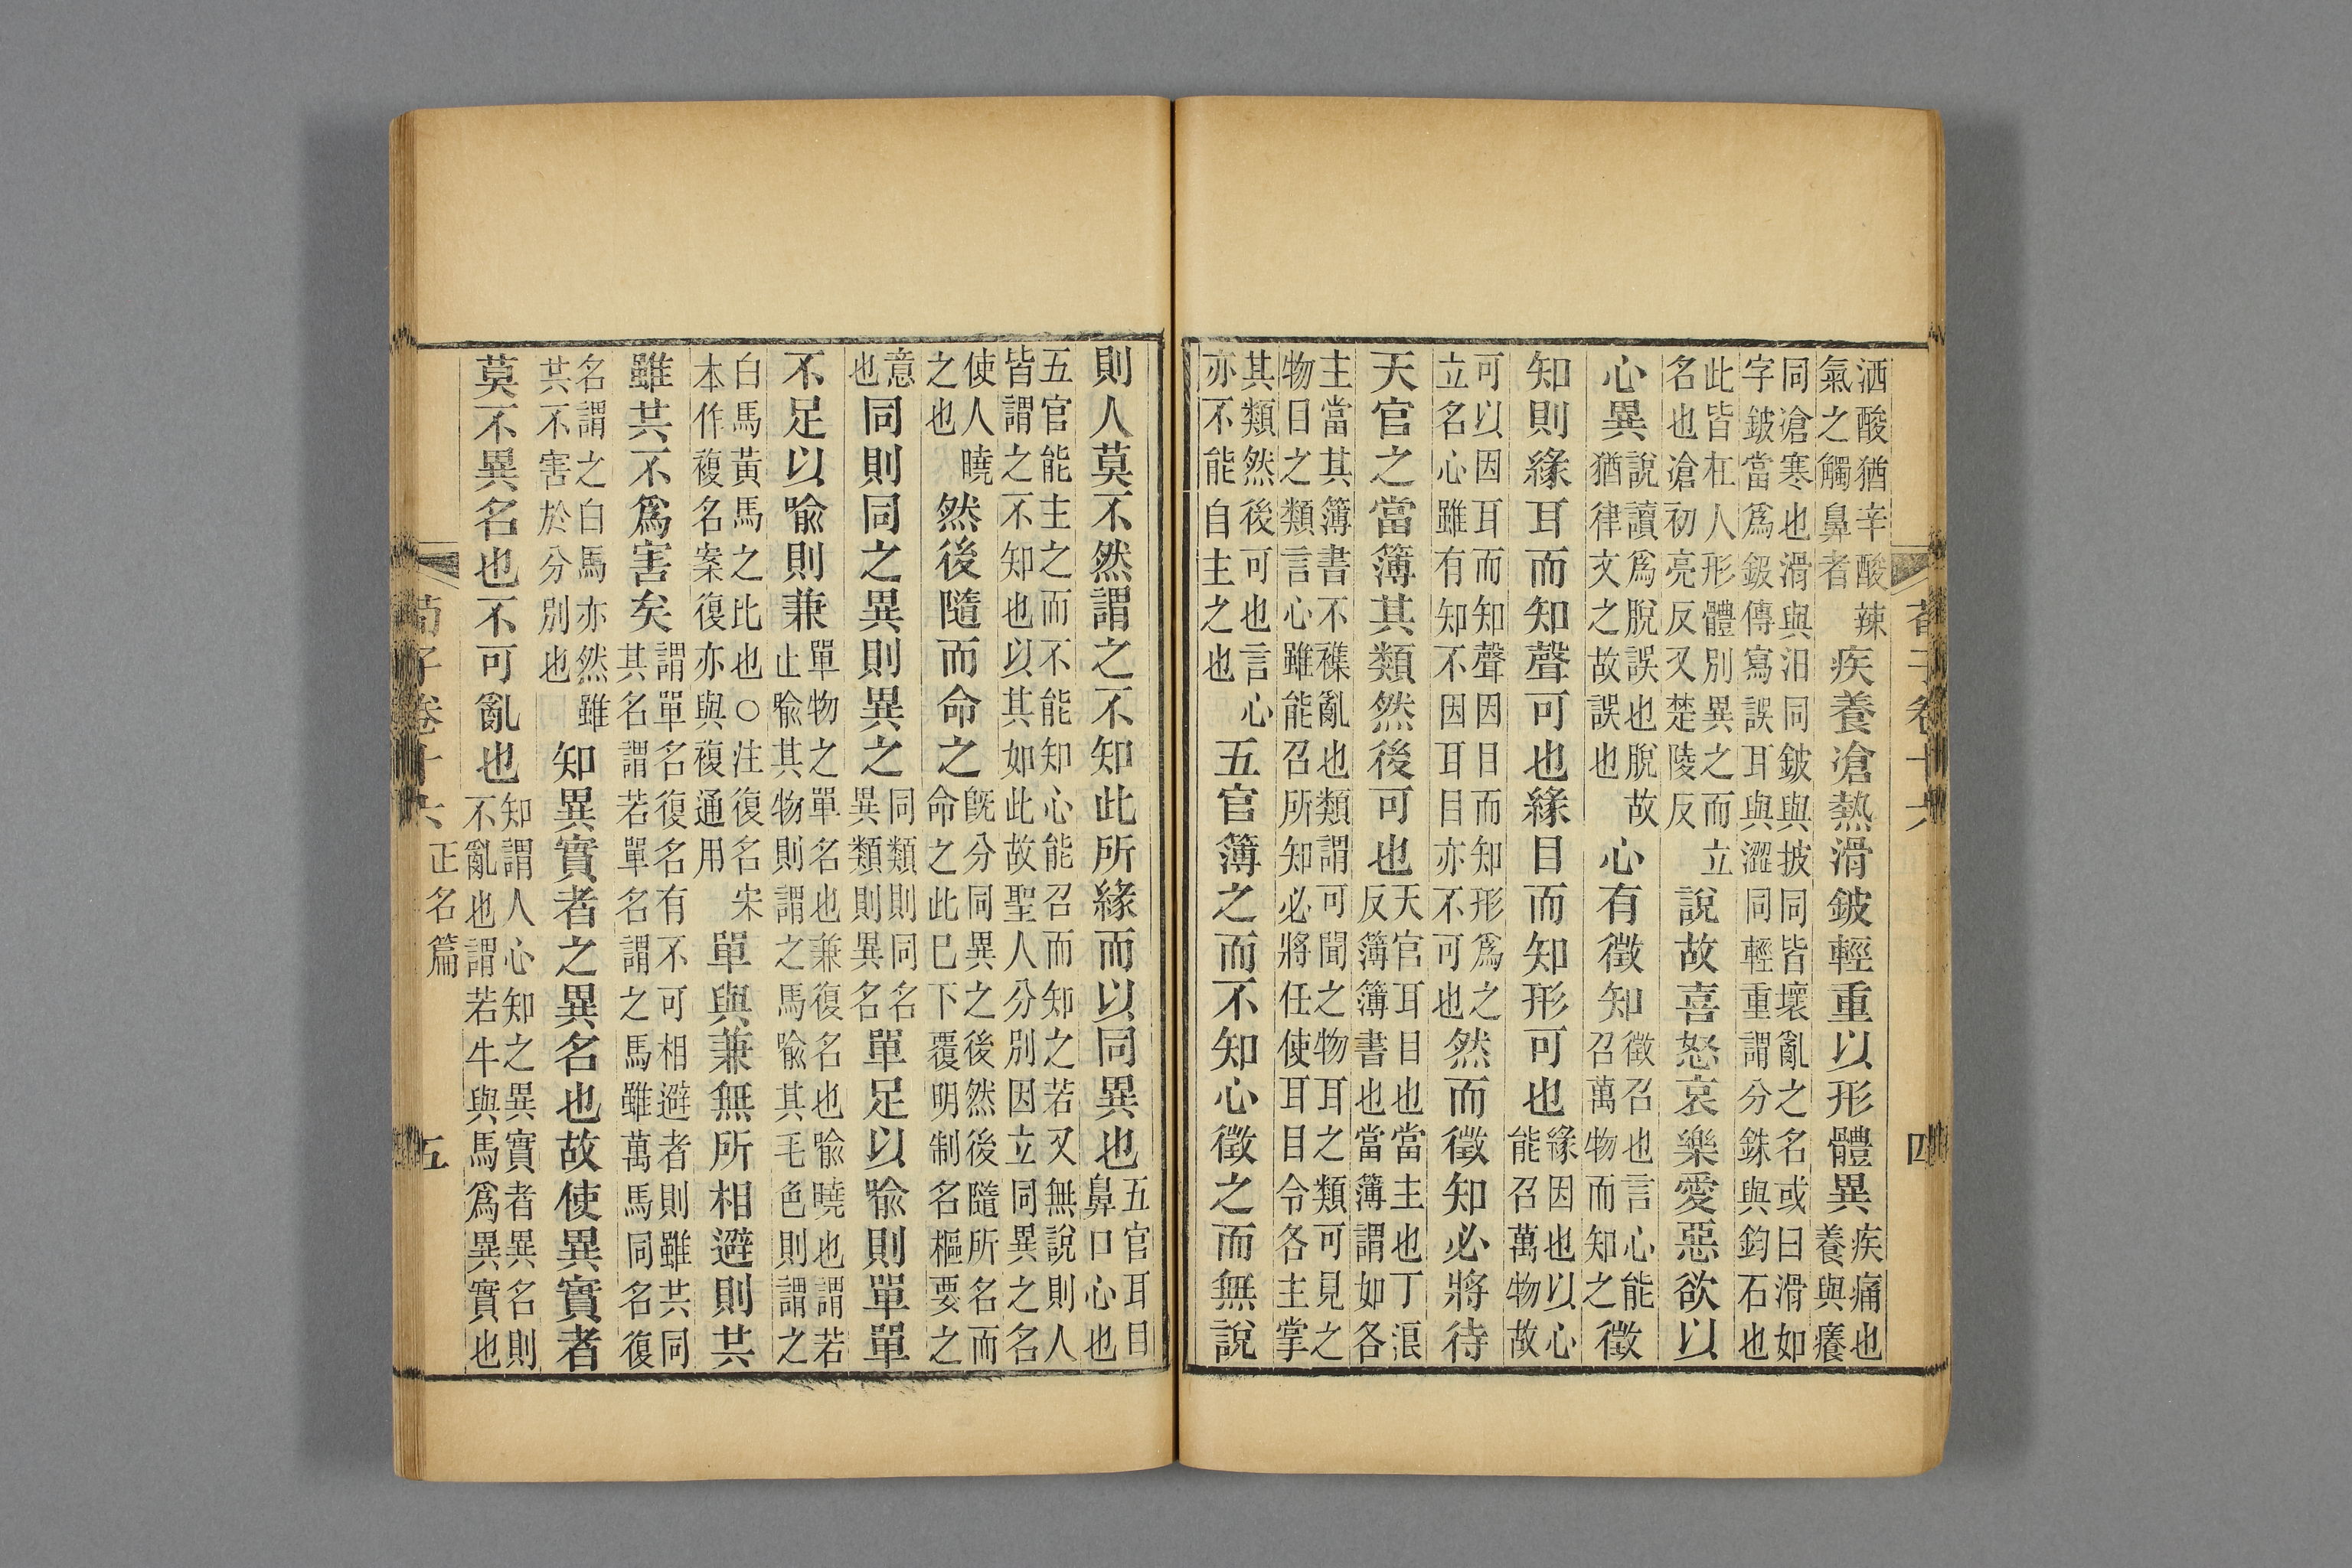 荀子卷十六　四
洒酸猶辛酸辣氣之觸鼻者疾養凔熱滑鈹輕重以形體異疾痛也養與癢
同凔寒也滑與汨同鈹與披同皆壞亂之名或曰滑如字鈹當爲鈒傳寫誤耳與澀同輕重謂分銖與鈞石也
此皆在人形體別異之而立名也凔初亮反又楚陵反說故喜怒哀樂愛惡欲以
心異說讀爲脫誤也脫故猶律文之故誤也心有徵知徵召也言心能召萬物而知之徵
知則緣耳而知聲可也緣目而知形可也緣因也以心能召萬物故
可以因耳而知聲因目而知形爲之立名心雖有知不因耳目亦不可也然而徵知必將待
天官之當簿其類然後可也天官耳目也當主也丁浪反簿簿書也當簿謂如各
主當其簿書不襍亂也類謂可聞之物耳之類可見之物目之類言心雖能召所知必將任使耳目令各主掌
其類然後可也言心亦不能自主之也五官簿之而不知心徵之而無說
則人莫不然謂之不知此所緣而以同異也五官耳目鼻口心也
五官能主之而不能知心能召而知之若又無說則人皆謂之不知也以其如此故聖人分別因立同異之名
使人曉之也然後隨而命之旣分同異之後然後隨所名而命之此已下覆明制名樞要之
意也同則同之異則異之同類則同名異類則異名單足以喻則單單
不足以喻則兼單物之單名也兼復名也喻曉也謂若止喻其物則謂之馬喻其毛色則謂之
白馬黃馬之比也○注復名宋本作複名案復亦與複通用單與兼無所相避則共
雖共不爲害矣謂單名復名有不可相避者則雖共同其名謂若單名謂之馬雖萬馬同名復
名謂之白馬亦然雖共不害於分別也知異實者之異名也故使異實者
莫不異名也不可亂也知謂人心知之異實者異名則不亂也謂若牛與馬爲異實也
荀子卷十六　正名篇　五